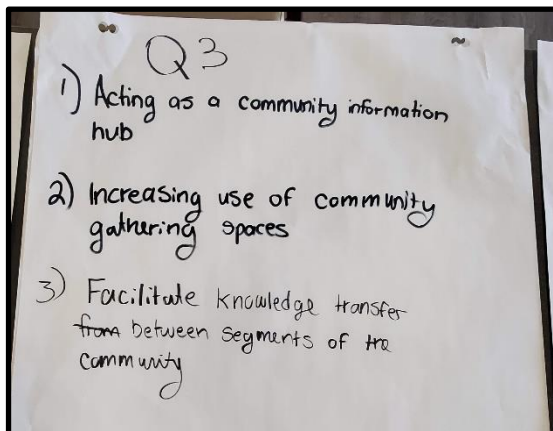 Q3
1) Acting as a community information
hub
2) Increasing use of community
gathering spaces
3) Facilitate knowledge transfer
from between segments of the
community